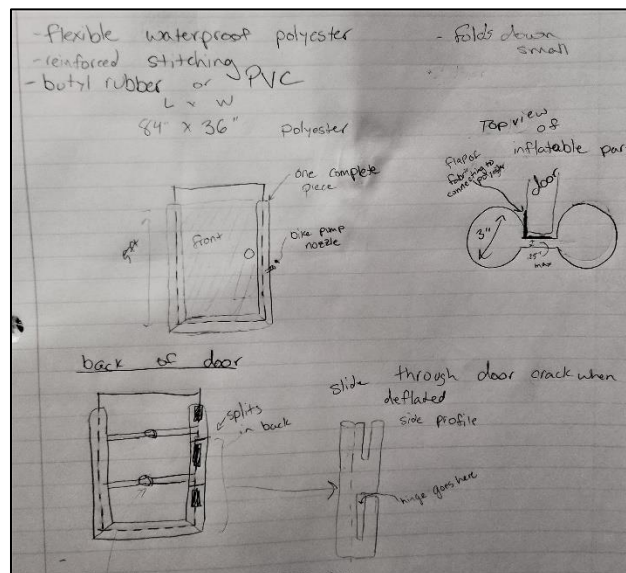 -flexible waterproof polyester
-reinforced stitching
-butyl rubber or PVC
L x W
84" x 36" polyester
- folds down
small
Top view
of
inflatable par
flap of
fabric
connecting to
polyester
door
3"
max
one complete
piece
front
bike pump
nozzle
back of door
splits
in back
slide through door crack when
deflated
side profile
hinge goes here